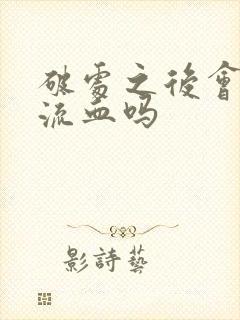 破處之後會
流血吗
影詩藝